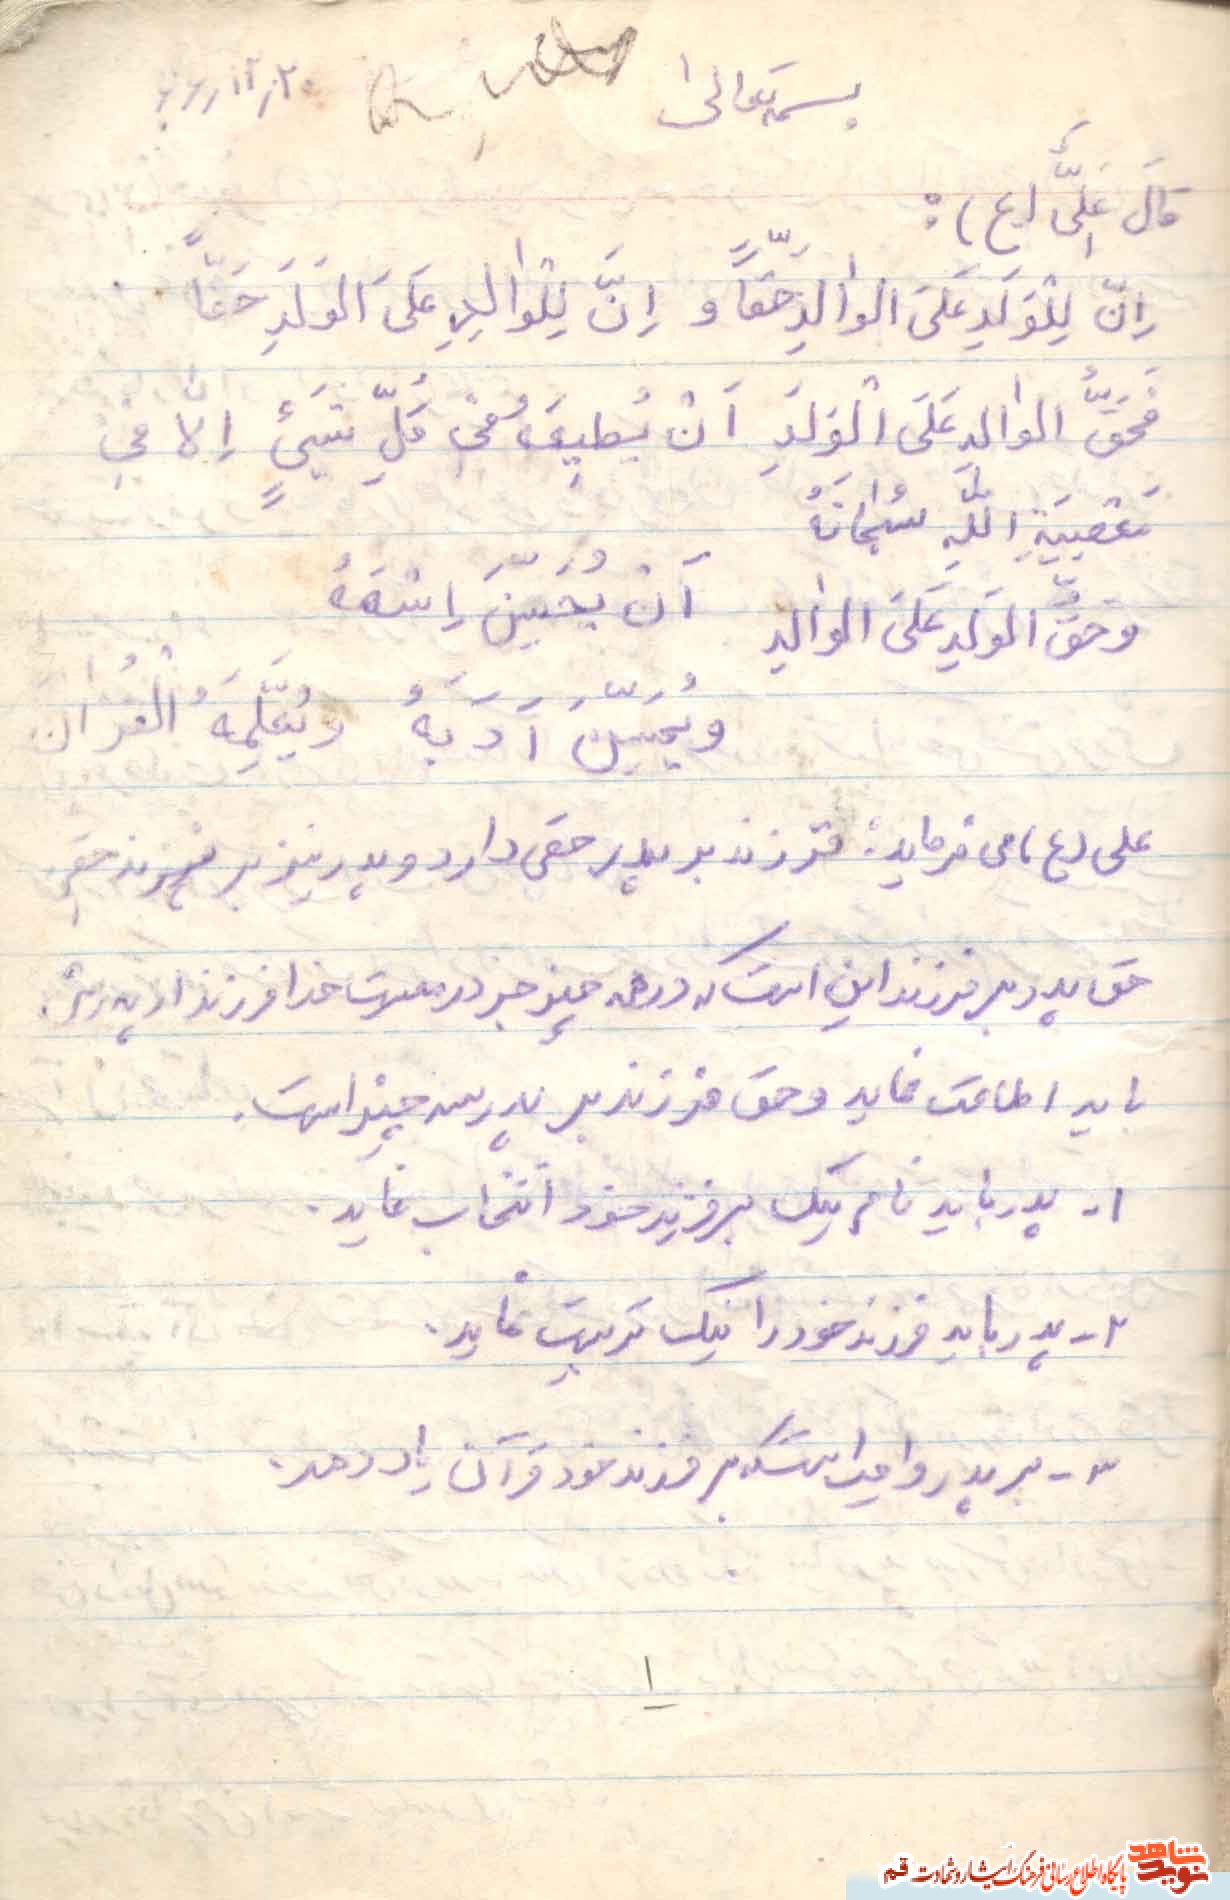 بسمه تعالی
۶۶/۱۲/۲۰
قالَ عَلِیٌّ (ع) :
اِنَّ لِلْوَلَدِ عَلَی الوٰالِدِ حَقّاً و اِنَّ لِلْوٰالِدِ عَلَی الوَلَدِ حَقّاً
فَحَقُّ الوٰالِدِ عَلَی الْوَلَدِ اَنْ یُطیعَهُ فی کُلِّ شَیْئٍ اِلا فی
مَعْصِیَةِ اللّٰهِ سُبْحٰانَهُ
وَحَقُّ الوَلَدِ عَلَی الوٰالِدِ اَنْ یُحَسِّنَ اِسْمَهُ
وَیُحَسِّنَ اَدَبَهُ وَیُعَلِّمَهُ الْقُرْآنَ
علی (ع) می فرماید: فرزند بر پدر حقی دارد و پدر نیز بر فرزند حقی
حق پدر بر فرزند این است که در همه چیز جز در معصیت خدا فرزند از پدرش
باید اطاعت نماید و حق فرزند بر پدر سه چیز است.
۱- پدر باید نام نیک بر فرزند خود انتخاب نماید.
۲- پدر باید فرزند خود را نیک تربیت نماید.
۳- بر پدر واجب است که بر فرزند خود قرآن یاد دهد.
۱
نوید شاهد
پایگاه اطلاع رسانی فرهنگ ایثار و شهادت قم